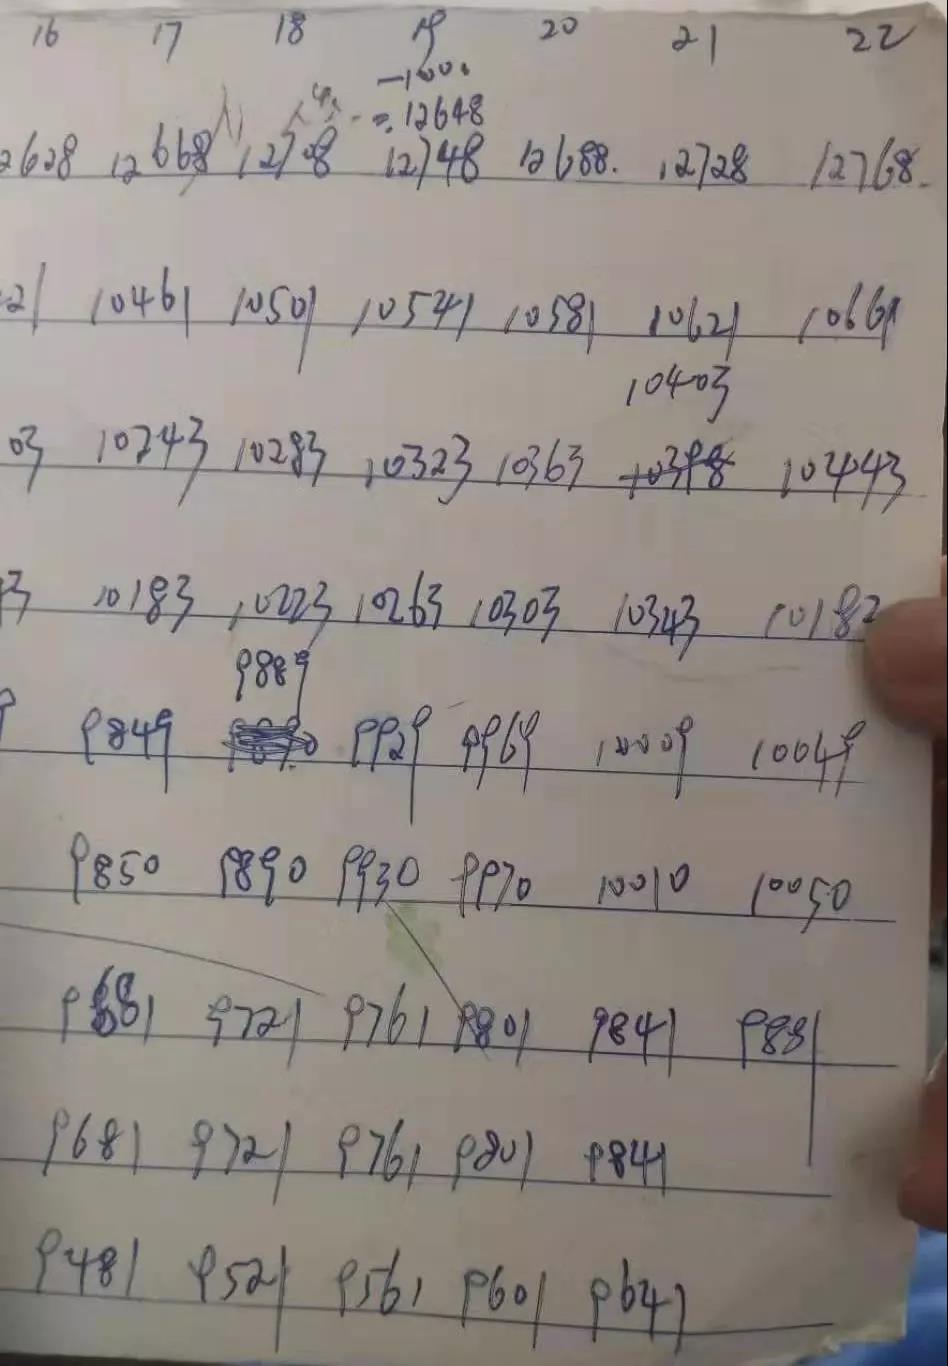 16 17 18 19 20 21 22
-1000
=12648
2628 12668 12708 12748 12688. 12728 12768.
21 10461 10501 10541 10581 10621 10661
10403
03 10243 10283 10323 10363 10398 10443
3 10183 10223 10263 10303 10343 10182
9889
9 9849 9929 9969 10009 10049
9850 9890 9930 9970 10010 10050
9681 9721 9761 9801 9841 9881
9681 9721 9761 9801 9841
9481 9521 9561 9601 9641